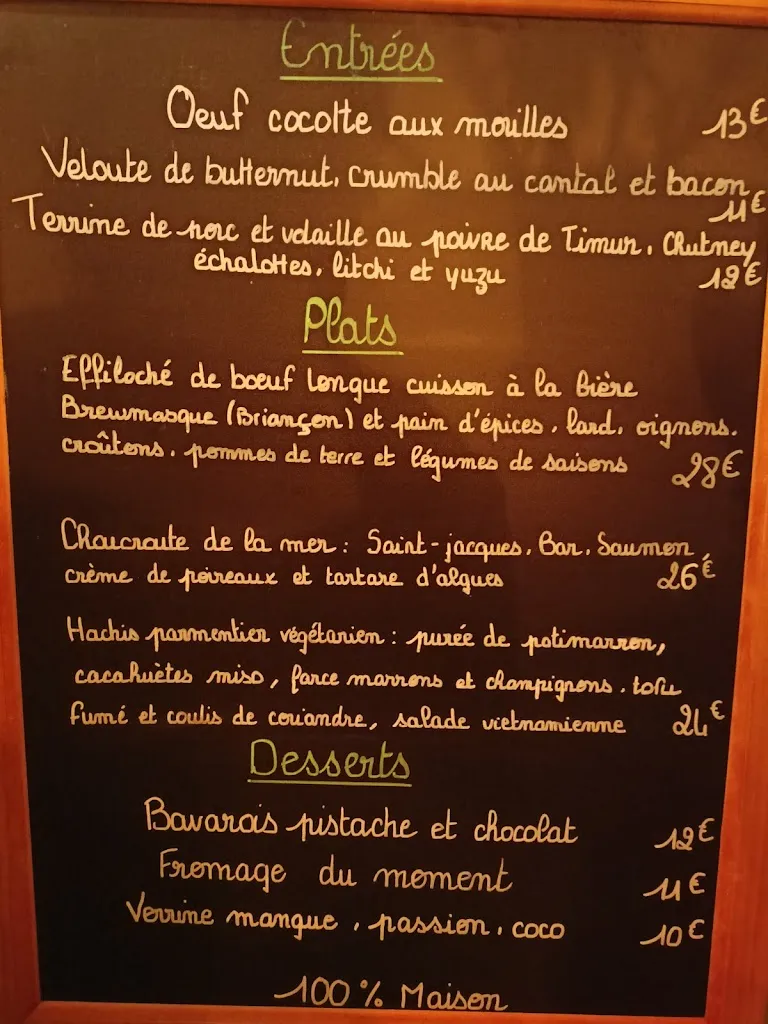 Entrées
Oeuf cocotte aux mouilles 13€
Veloute de butternut, crumble au cantal et bacon
11€
Terrine de porc et volaille au poivre de Timur, Chutney
échalottes, litchi et yuzu 12€
Plats
Effiloché de boeuf longue cuisson à la bière
Brewmasque (Briançon) et pain d'épices, lard, oignons,
croûtons, pommes de terre et légumes de saisons 28€
Choucroute de la mer : Saint-jacques, Bar, Saumon,
crème de poireaux et tartare d'algues 26€
Hachis parmentier végétarien : purée de potimarron,
cacahuètes miso, farce marrons et champignons, tofu
fumé et coulis de coriandre, salade vietnamienne 24€
Desserts
Bavarois pistache et chocolat 12€
Fromage du moment 11€
Verrine mangue, passion, coco 10€
100% Maison